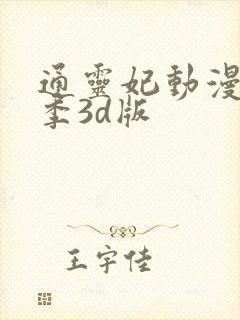 通靈妃動漫
季3d版
王宇佳